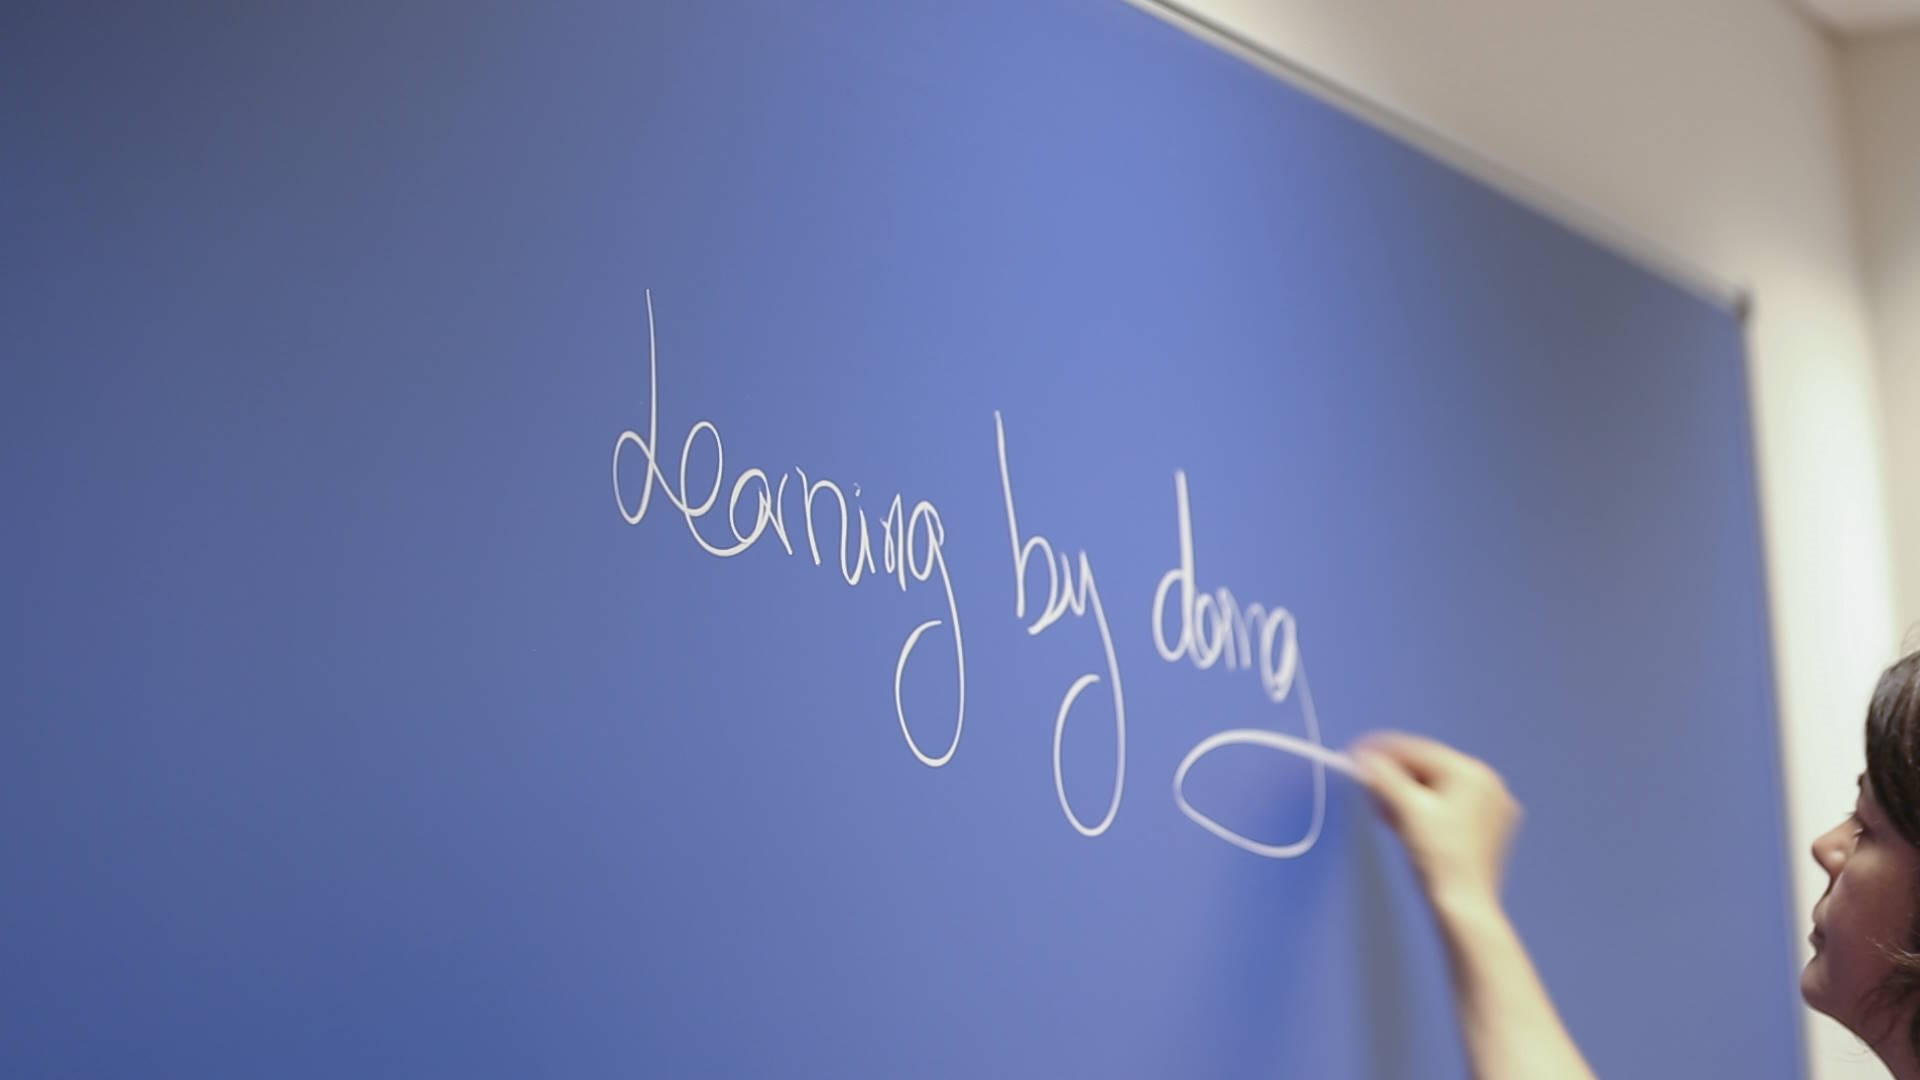 Learning by doing